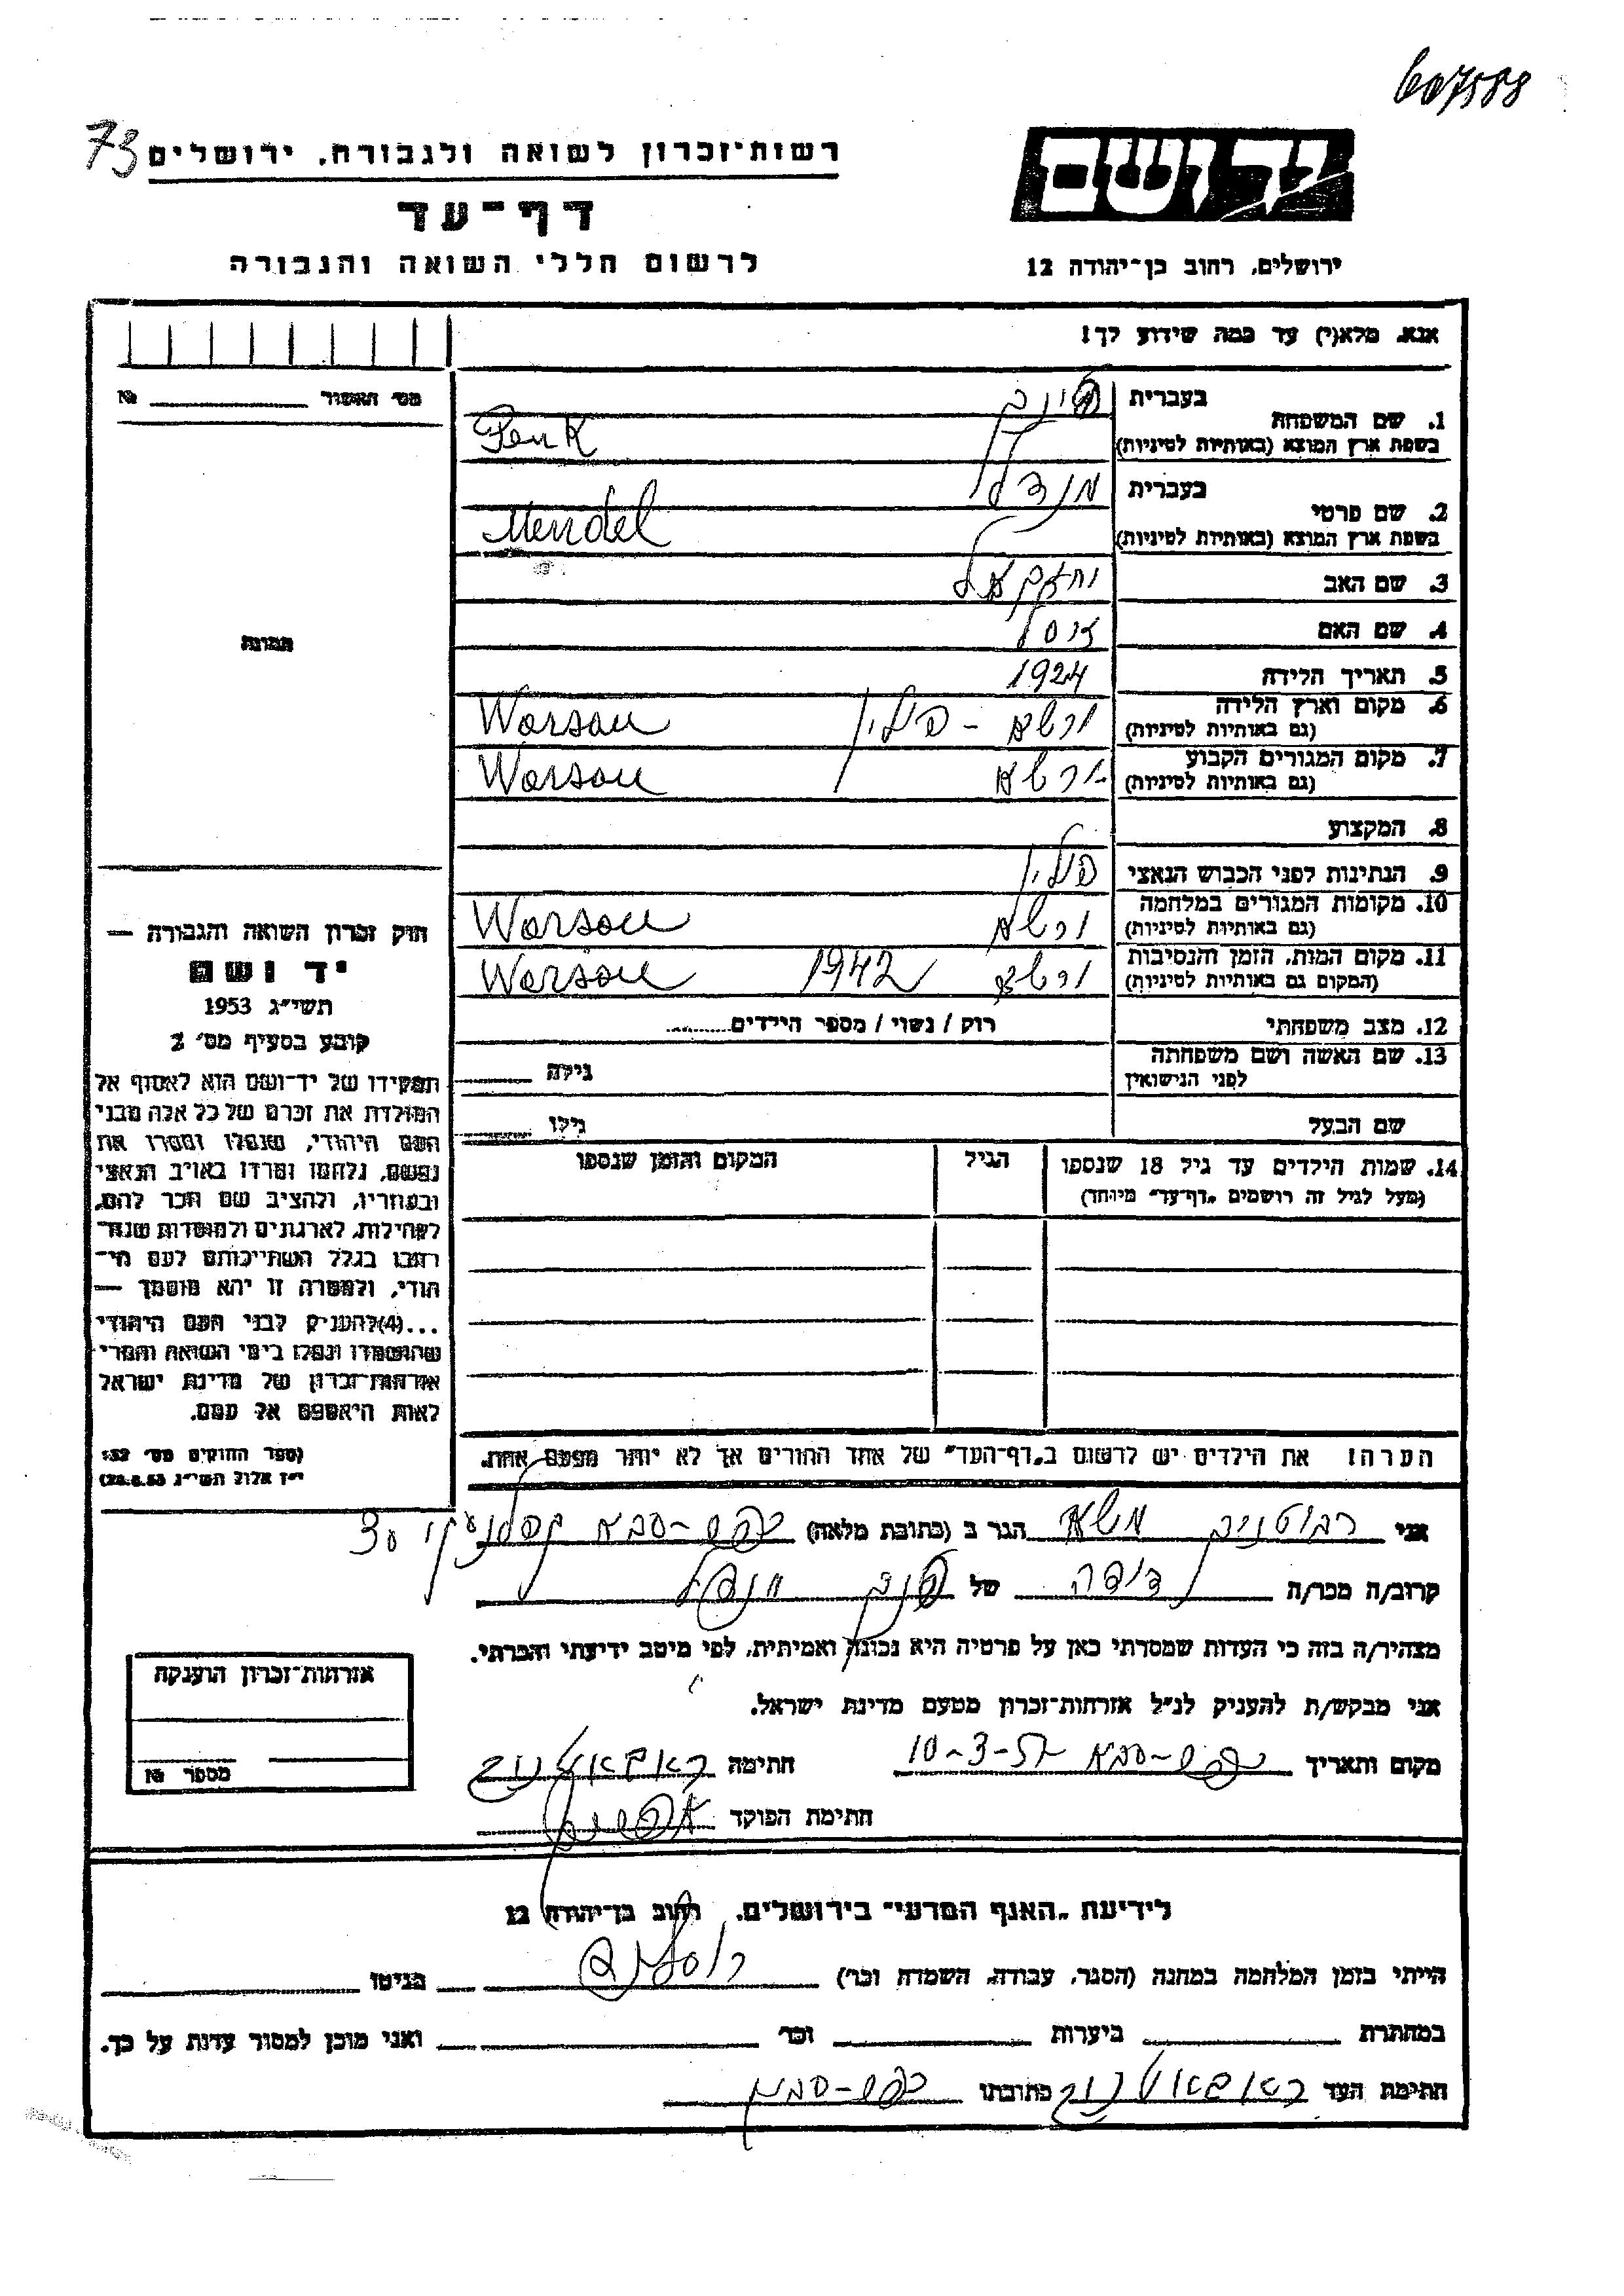 607588
73
רשות־זכרון לשואה ולגבורה, ירושלים
יד ושם
דף־עד
לרשום חללי השואה והגבורה
ירושלים, רחוב בן־יהודה 12
אנא, מלא(י) עד כמה שידוע לך!
מס׳ תאשור № ____
1. שם המשפחה
בעברית
בשפת ארץ המוצא (באותיות לטיניות) Penk
2. שם פרטי
בעברית מנדל
בשפת ארץ המוצא (באותיות לטיניות) Mendel
3. שם האב יחזקאל
4. שם האם
5. תאריך הלידה 1924
6. מקום וארץ הלידה ורשא - פולין Warsau
(גם באותיות לטיניות)
7. מקום המגורים הקבוע ורשא Warsau
(גם באותיות לטיניות)
8. המקצוע
9. הנתינות לפני הכבוש הנאצי פולין
10. מקומות המגורים במלחמה ורשא Warsau
(גם באותיות לטיניות)
11. מקום המות, הזמן והנסיבות ורשא 1942 Warsau
(המקום גם באותיות לטיניות)
12. מצב משפחתי רוק / נשוי / מספר הילדים........
13. שם האשה ושם משפחתה גילה ____
לפני הנישואין
שם הבעל גילו ____
14. שמות הילדים עד גיל 18 שנספו הגיל המקום והזמן שנספו
(מעל לגיל זה רושמים „דף־עד״ מיוחד)
תמונה
חוק זכרון השואה והגבורה —
יד ושם
תשי״ג 1953
קובע בסעיף מס׳ 2
תפקידו של יד־ושם הוא לאסוף אל
המולדת את זכרם של כל אלה מבני
העם היהודי, שנפלו ומסרו את
נפשם, נלחמו ומרדו באויב הנאצי
ובעוזריו, ולהציב שם וזכר להם,
לקהילות, לארגונים ולמוסדות שנח־
רבו בגלל השתייכותם לעם הי־
הודי, ולמטרה זו יהא מוסמך —
...(4) להעניק לבני העם היהודי
שהושמדו ונפלו בימי השואה והמרי
אזרחות־זכרון של מדינת ישראל
לאות היאספם אל עמם.
(ספר החוקים מס׳ 132
י״ז אלול תשי״ג 28.8.53)
הערה: את הילדים יש לרשום ב„דף־העד״ של אחד ההורים אך לא יותר מפעם אחת.
אני משא הגר ב (כתובת מלאה) כפר-סבא
קרוב/ה מכר/ה דודה של פנק מנדל
מצהיר/ה בזה כי העדות שמסרתי כאן על פרטיה היא נכונה ואמיתית, לפי מיטב ידיעתי והכרתי.
אני מבקש/ת להעניק לנ״ל אזרחות־זכרון מטעם מדינת ישראל.
מקום ותאריך כפר-סבא 10-3-57 חתימה
חתימת הפוקד
אזרחות־זכרון הוענקה
מספר №
לידיעת „האגף המדעי״ בירושלים, רחוב בן־יהודה 12
הייתי בזמן המלחמה במחנה (הסגר, עבודה, השמדה וכו׳) ____ בגיטו ____
במחתרת ____ ביערות ____ וכו׳ ____ ואני מוכן למסור עדות על כך.
חתימת העד כתובתו כפר-סבא